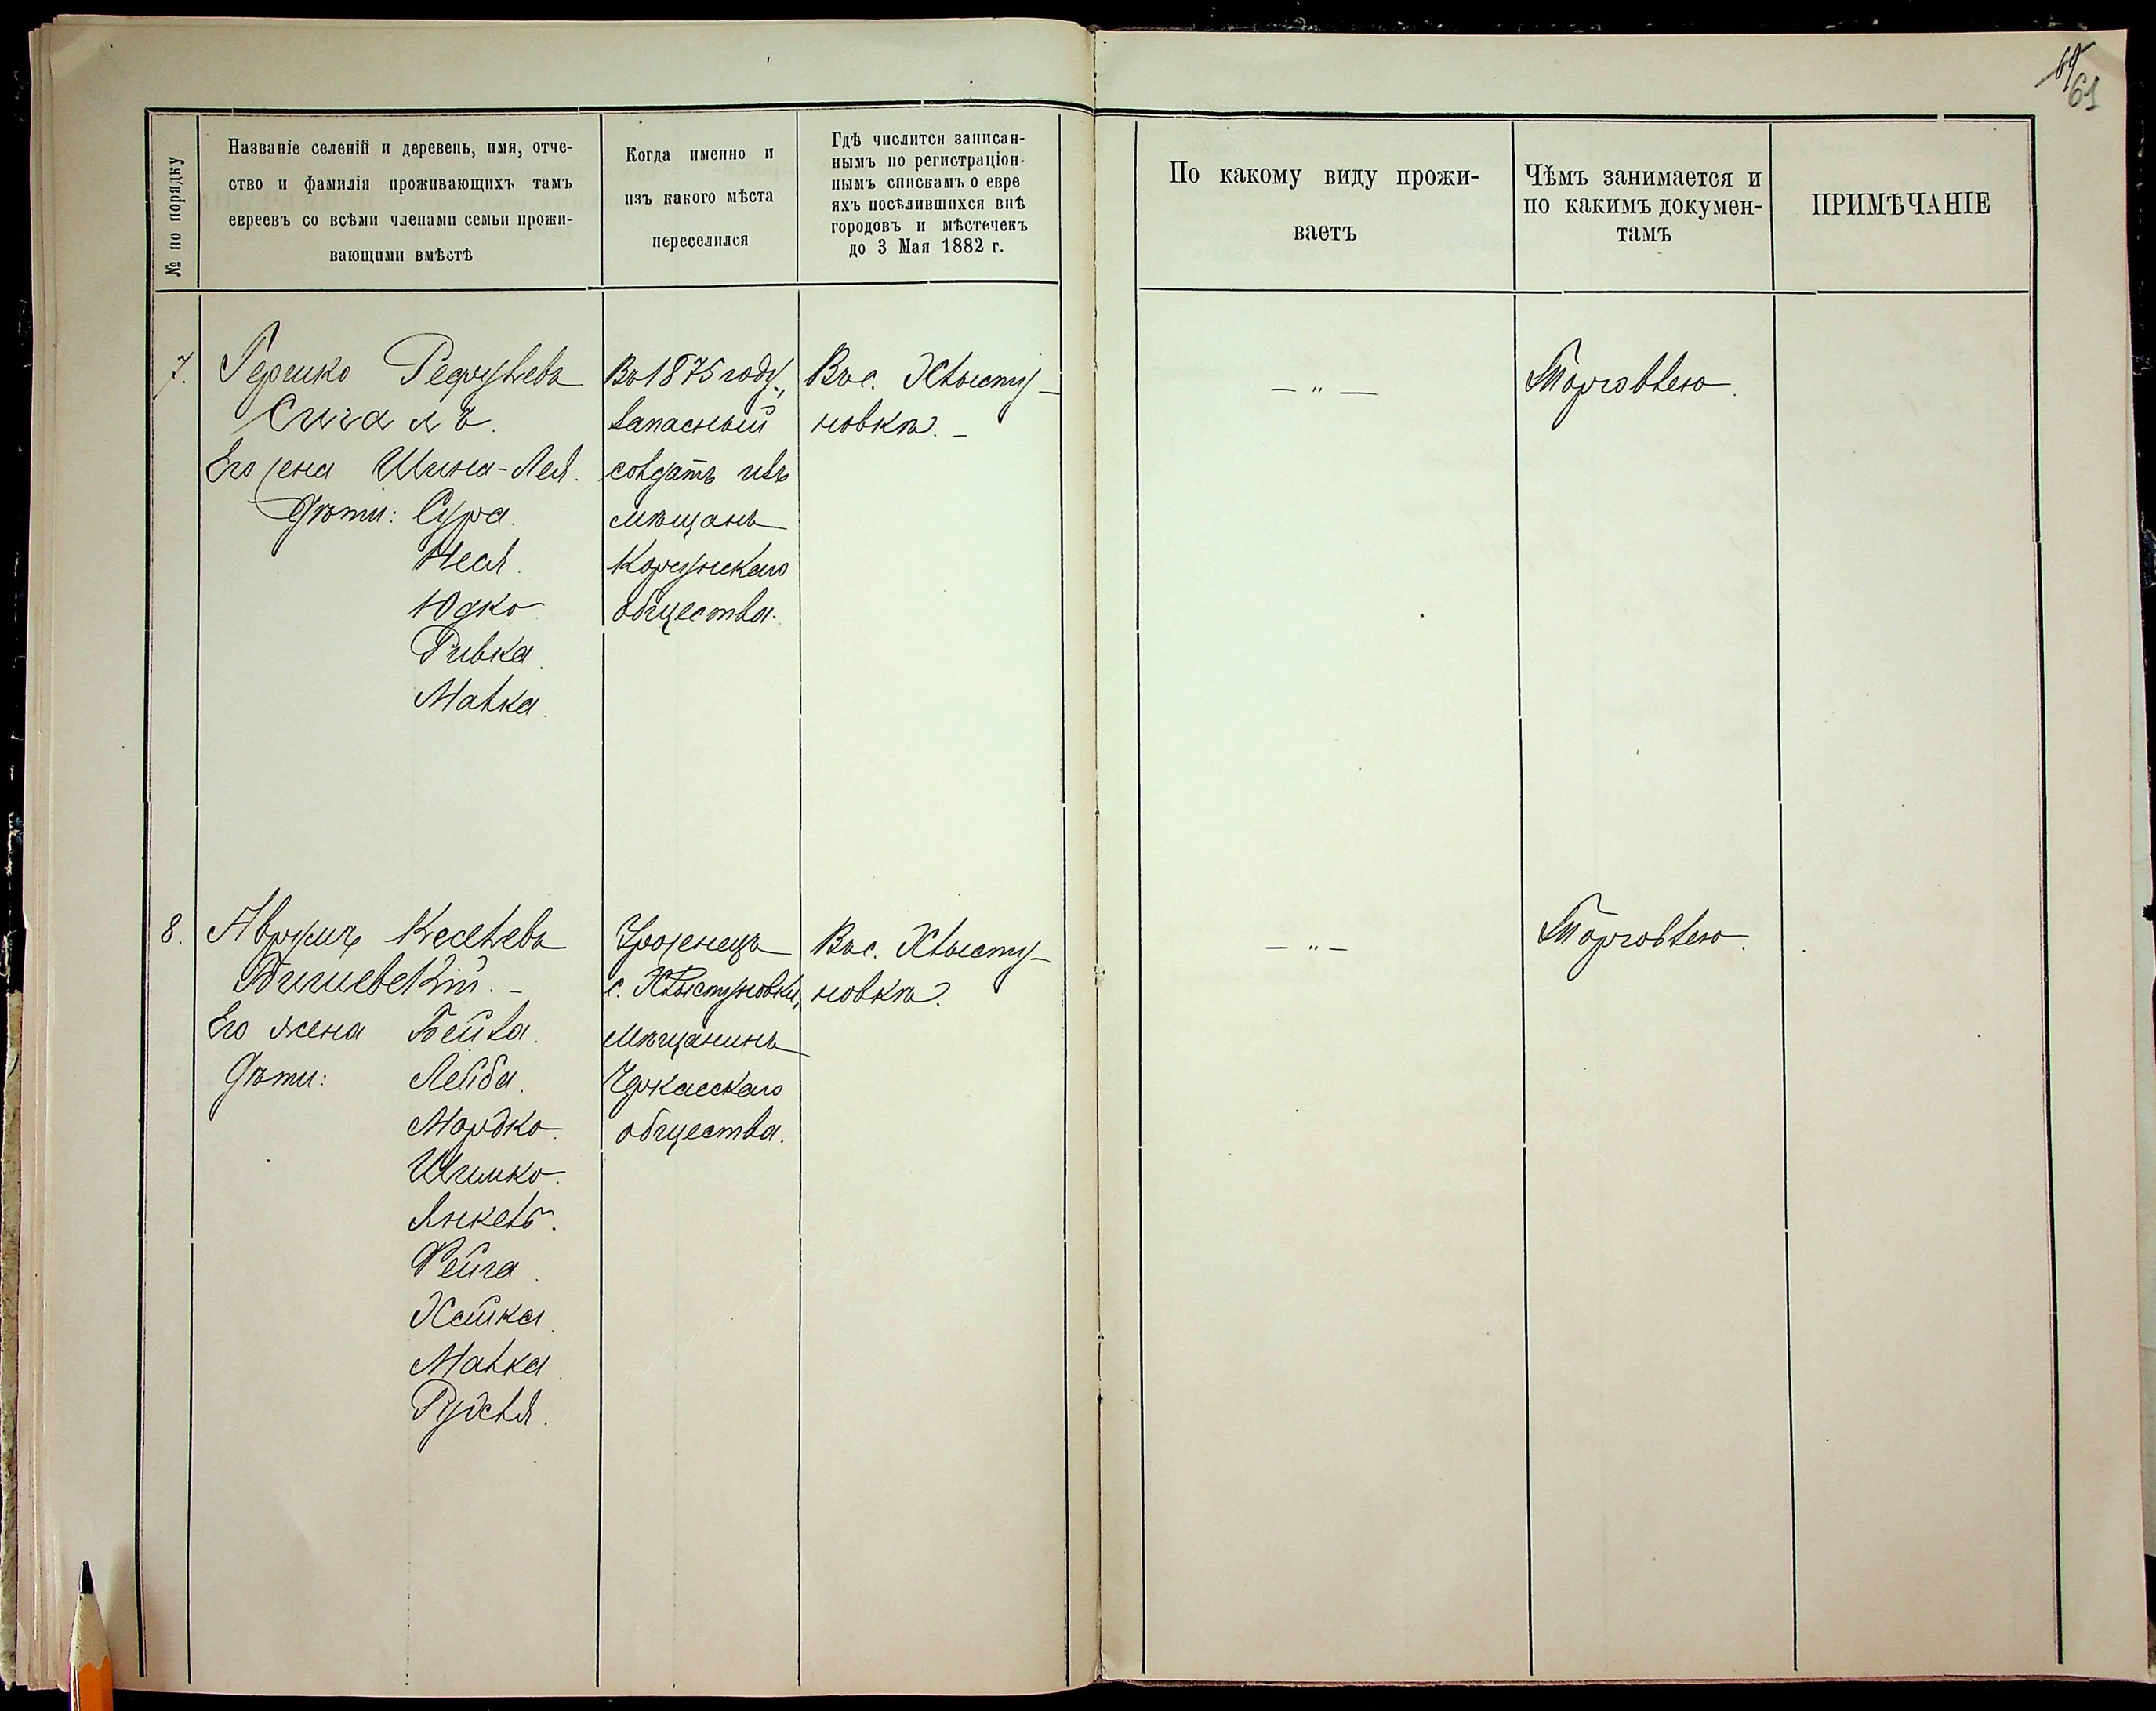 61
№ по порядку
Названіе селеній и деревень, имя, отче-
ство и фамилія проживающихъ тамъ
евреевъ со всѣми членами семьи прожи-
вающими вмѣстѣ
Когда именно и
изъ какого мѣста
переселился
Гдѣ числится записан-
нымъ по регистраціон-
нымъ спискамъ о евре
яхъ посѣлившихся внѣ
городовъ и мѣстечекъ
до 3 Мая 1882 г.
По какому виду прожи-
ваетъ
Чѣмъ занимается и
по какимъ докумен-
тамъ
ПРИМѢЧАНІЕ
7.
Гершко
Сигалъ.
Его жена Шина-Лея.
Дѣти: Сура.
Неся.
Юдко.
Ривка.
Малка.
Въ 1875 году,
запасный
солдатъ изъ
мѣщанъ
Корсунскаго
общества.
Въ с. Хлысту-
новкѣ. -
— " —
Торговлею.
8.
Аврумъ
Его жена Бейла.
Дѣти: Лейба.
Мордко.
Шимко.
Янкель.
Фейга.
Хайка.
Малка.
Рухля.
Уроженецъ
с. Хлыстуновки,
мѣщанинъ
Черкасскаго
общества.
Въ с. Хлысту-
новкѣ.
— " —
Торговлею.